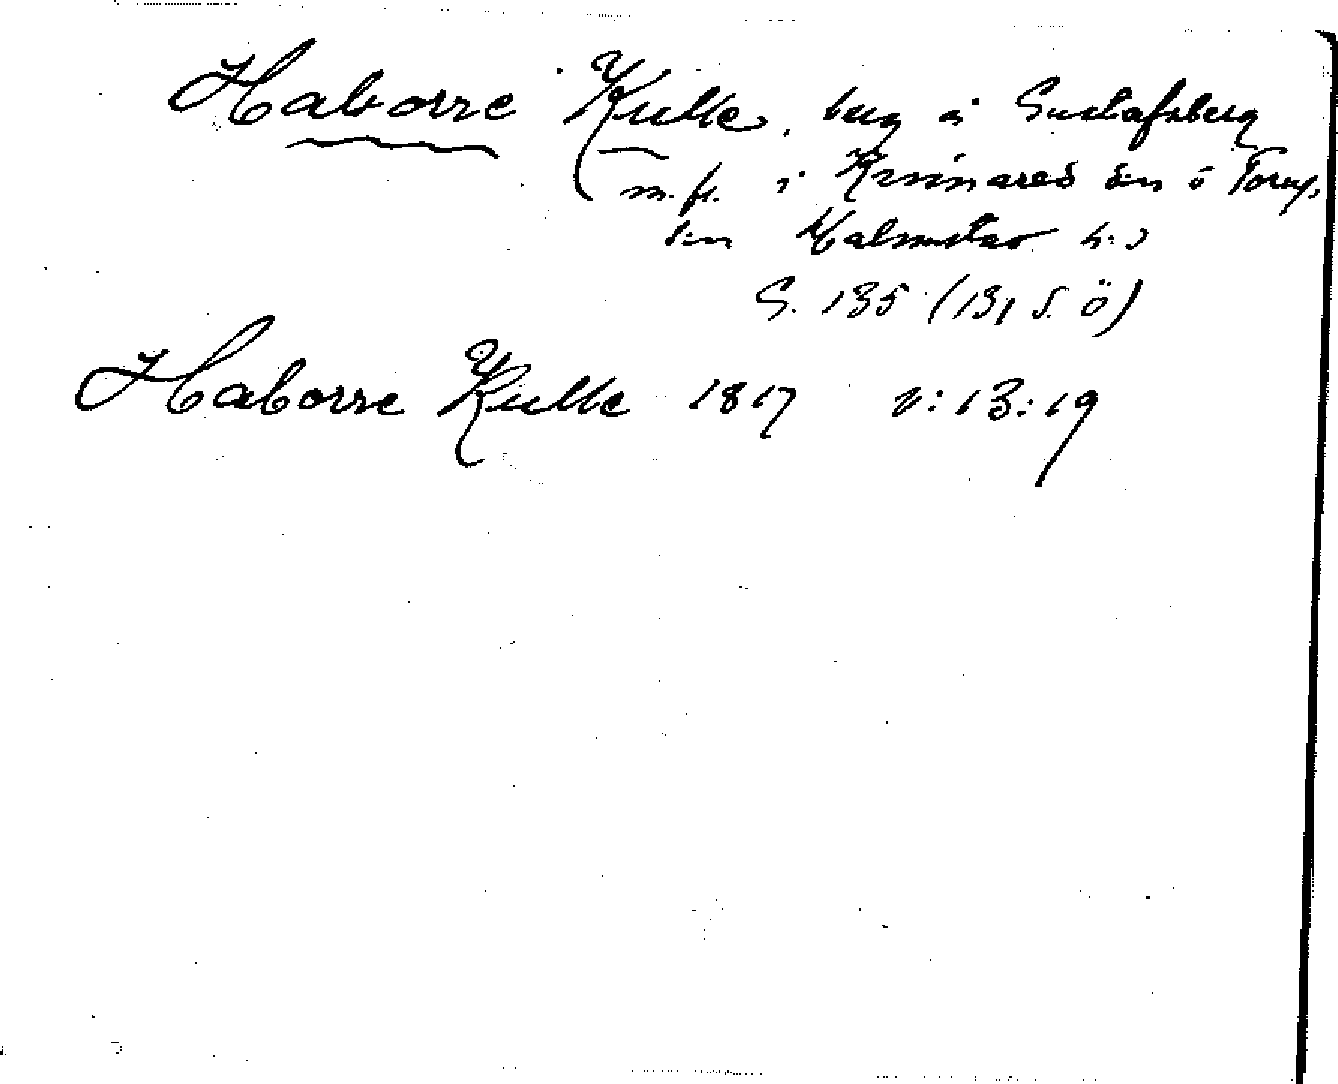 Haborre Kulle, berg å Gustafsberg
m. fl. i Kvinnared sn o Torup
sn Halmstad h:d
S. 135 (131 S. Ö)
Haborre Kulle 1817 v:13:19